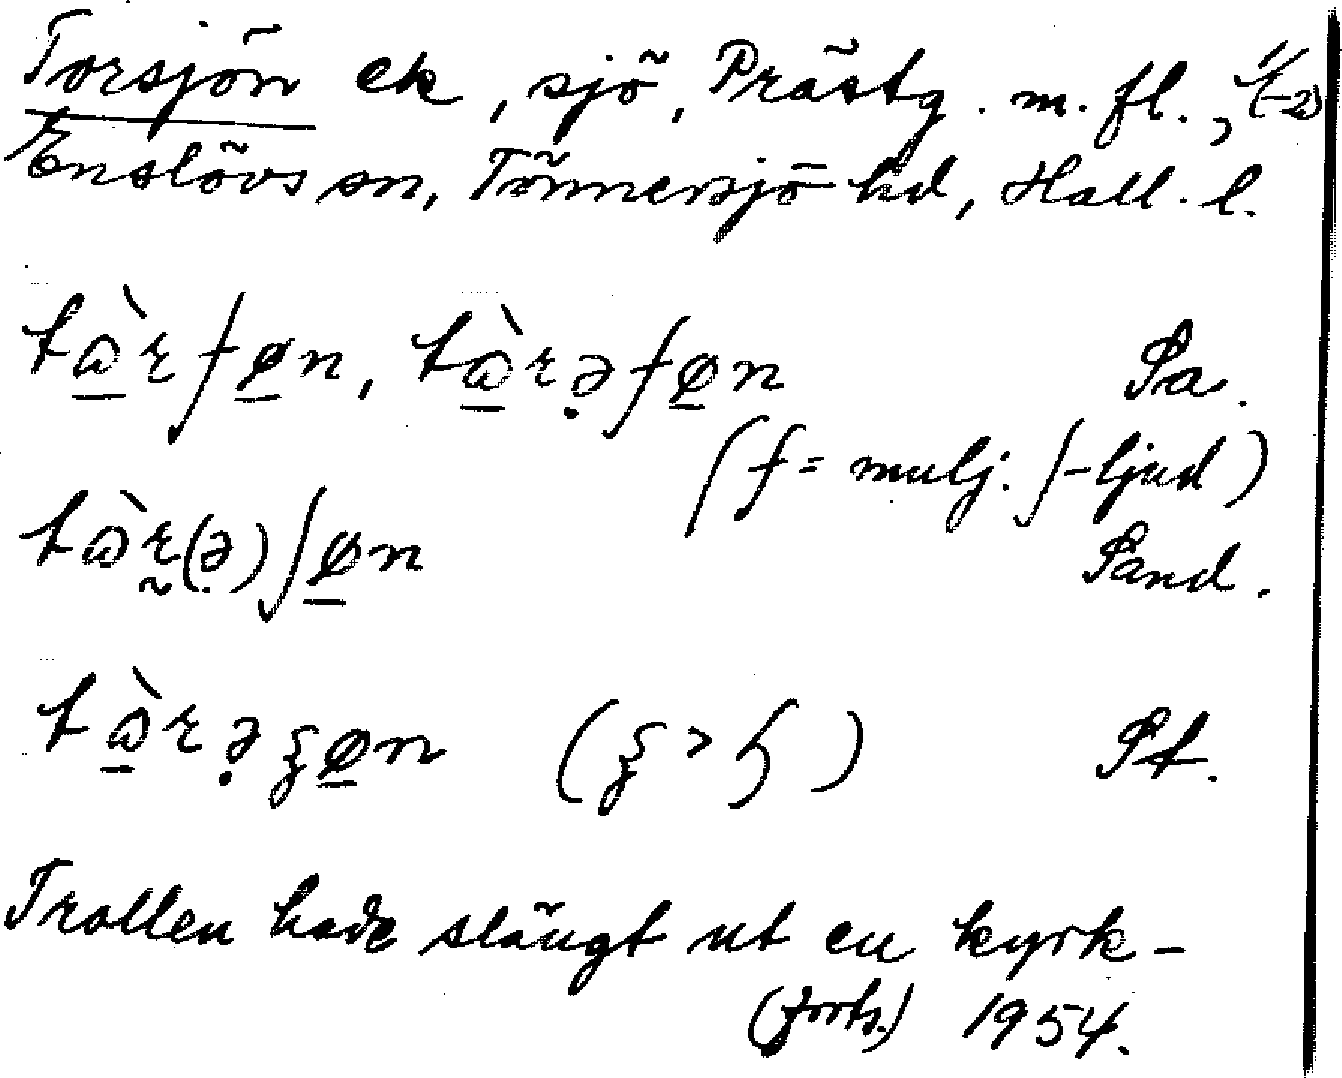 Torsjön ek, sjö, Prästg. m. fl.,
Enslövs sn, Tönnersjö hd, Hall. l.
tɷ̀rʃøn, tɷ̀rəʃøn Sa.
(ʄ = mulj. ʃ-ljud)
tɷ̀r(ə)ʃøn Sand.
tɷ̀rəξøn (ξ > ɧ) St.
Trollen hade slängt ut en kyrk-
(forts.) 1954.